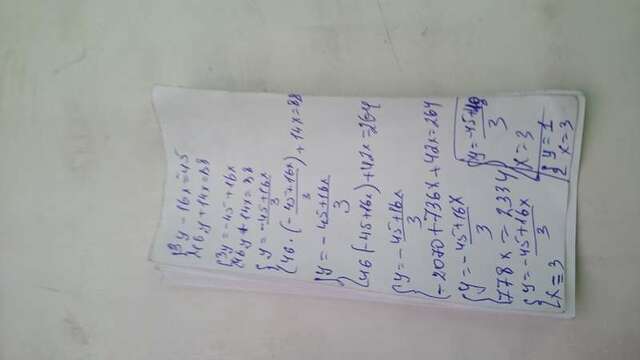 {3y - 16x = 45
46y + 14x = 88
{3y = -45 + 16x
46y + 14x = 88
{y = -45+16x/3
46 · (-45+16x/3) + 14x = 88
{y = -45+16x/3
46(-45+16x) + 42x = 264
{y = -45+16x/3
-2070 + 736x + 42x = 264
{y = -45+16x/3
778x = 2334
{y = -45+16x/3
x = 3
x = 3
{y = 1
x = 3